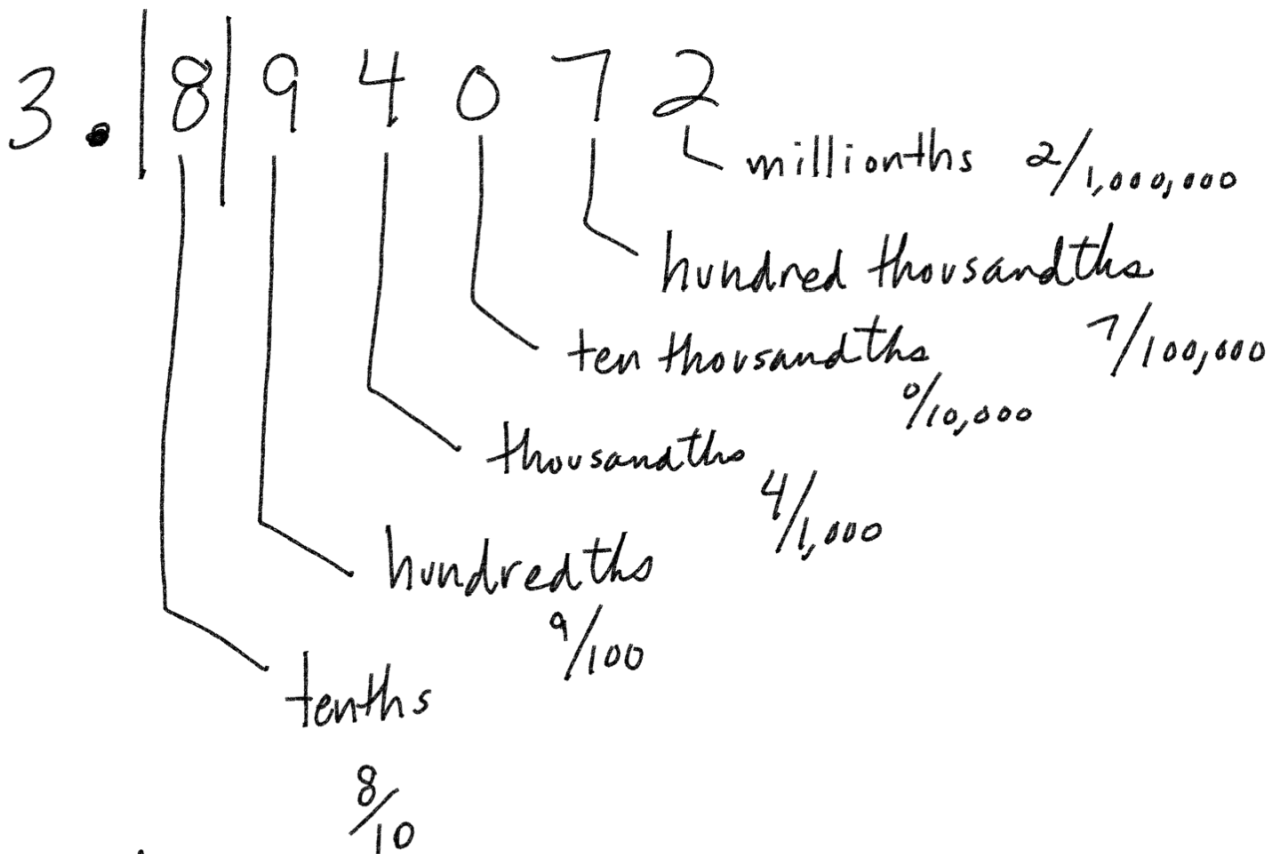 3.|8|94072
millionths 2/1,000,000
hundred thousandths
7/100,000
ten thousandths
0/10,000
thousandths
4/1,000
hundredths
9/100
tenths
8/10